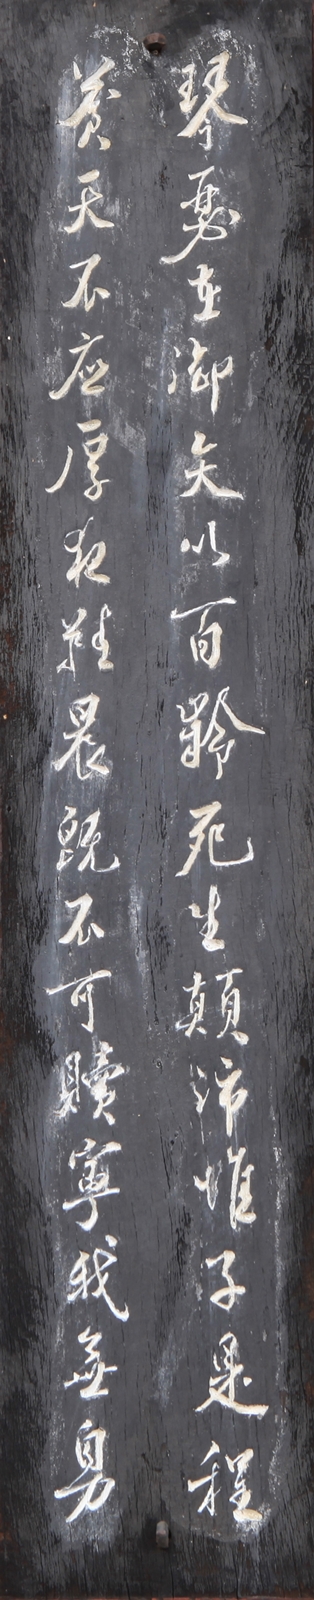 琴瑟在御矢以百齡死生顛沛惟子是程
蒼天不應厚夜難晨既不可贖寧我無身